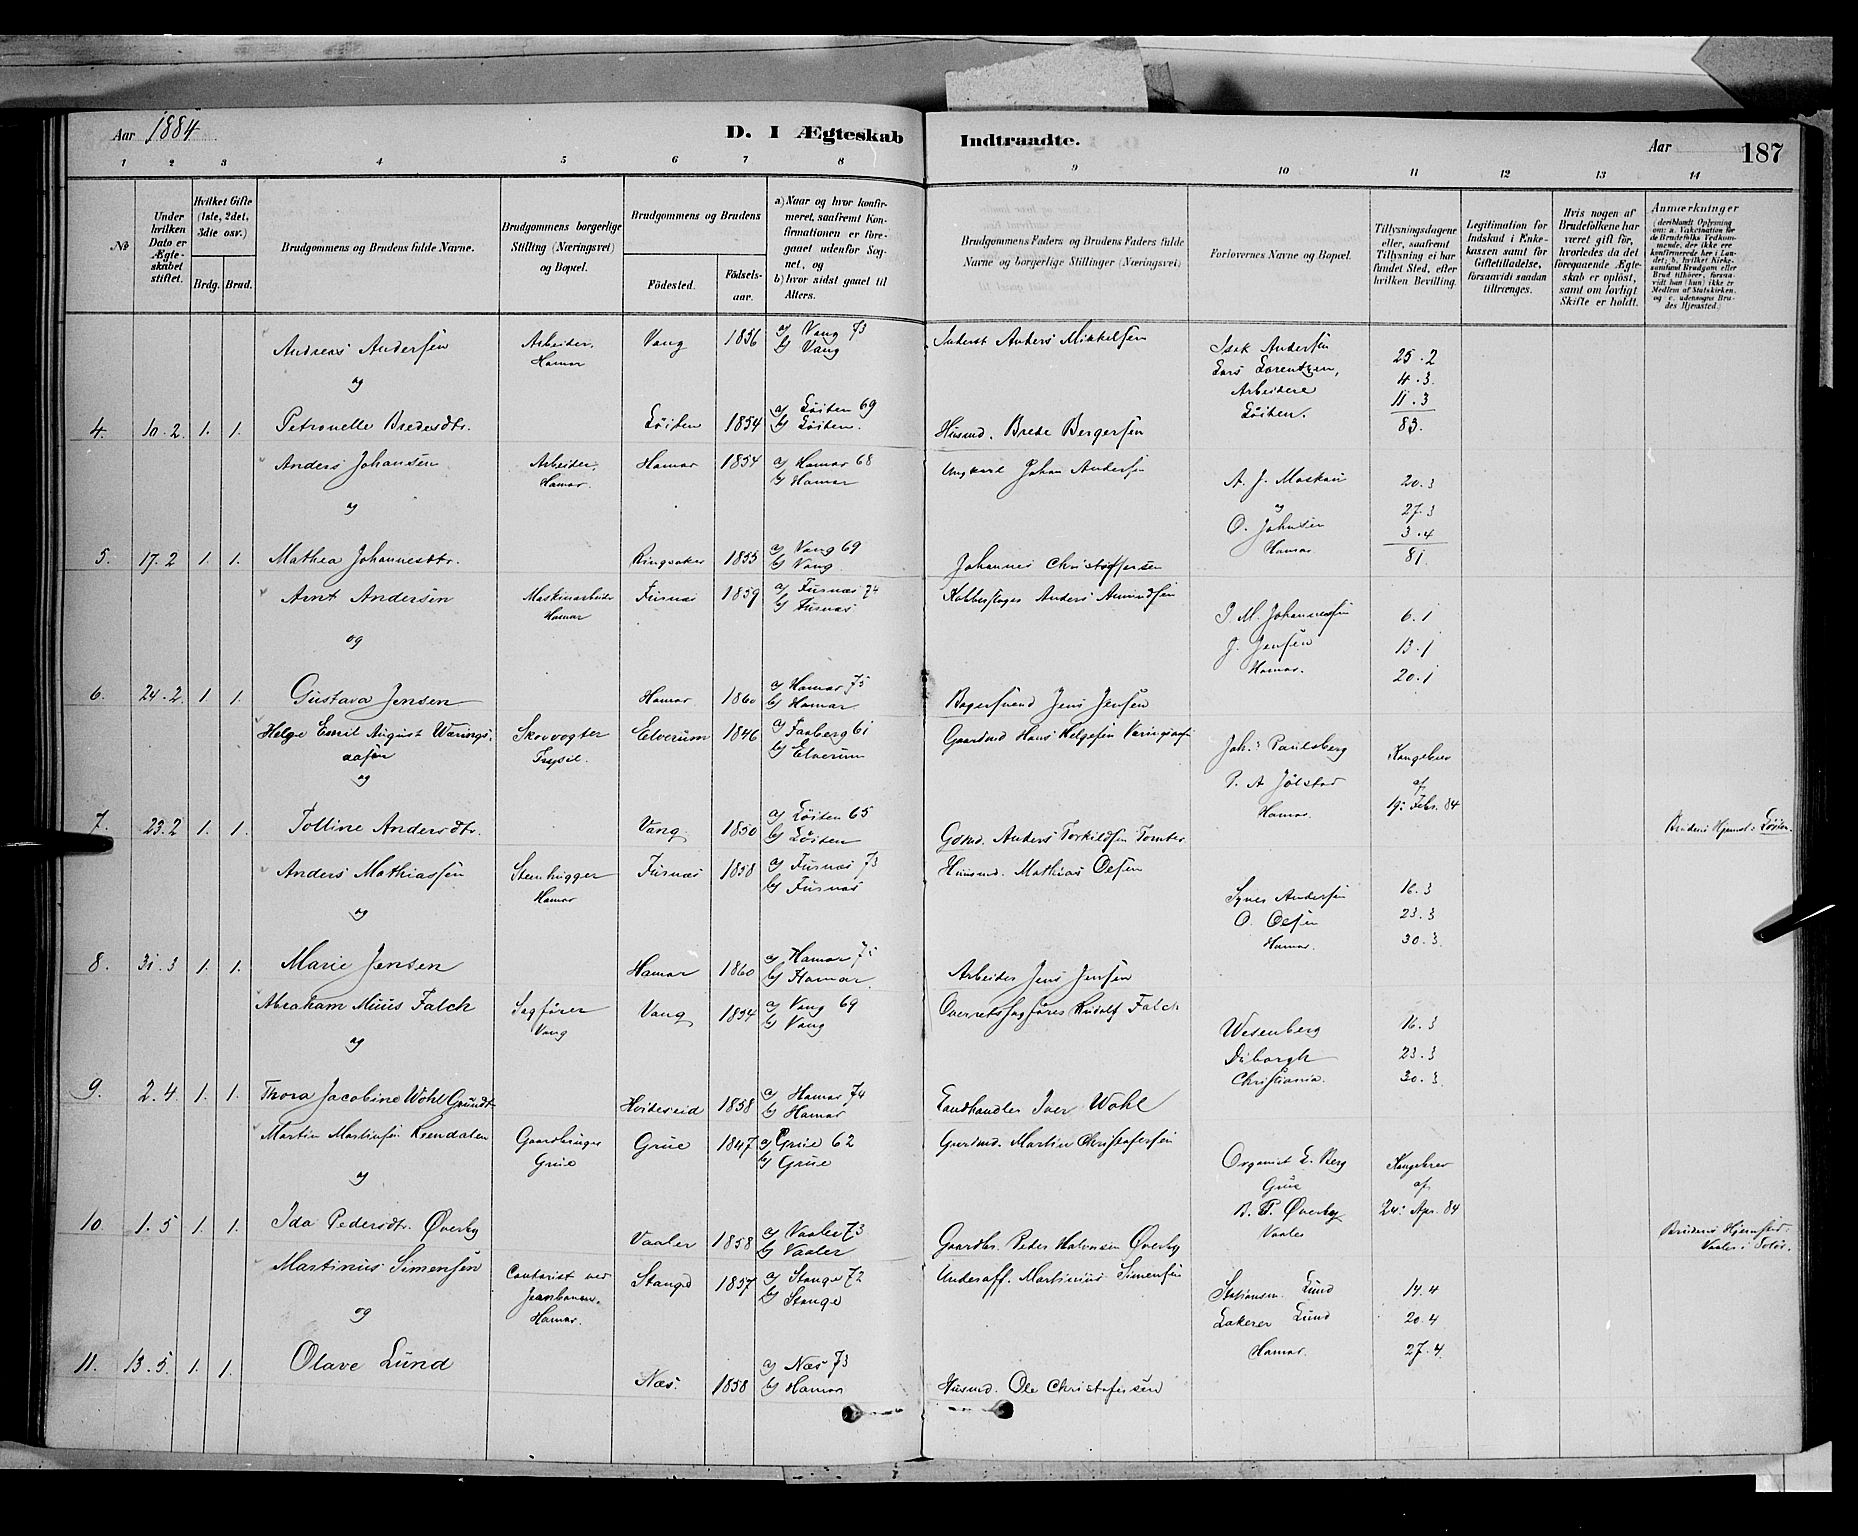 Aar 1884
D. I Ægteskab
Indtraadte.
Aar
187
1 2 3 4 5 6 7 8 9 10 11 12 13 14
No
Under hvilken Dato er Ægteskabet stiftet.
Hvilket Gifte (1ste, 2det, 3die osv.)
Brdg. Brud.
Brudgommens og Brudens fulde Navne.
Brudgommens borgerlige Stilling (Næringsvei) og Bopæl.
Brudgommens og Brudens
Fødested.
Fødselsaar.
a) Naar og hvor konfirmeret, saafremt Konfirmationen er foregaaet udenfor Sognet, og
b) hvor sidst gaaet til Alters.
Brudgommens Faders og Brudens Faders fulde Navne og borgerlige Stillinger (Næringsvei)
Forlovernes Navne og Bopæl.
Tillysningsdagene eller, saafremt Tillysning ei har fundet Sted, efter hvilken Bevilling.
Legitimation for Indskud i Enkekassen samt for Giftetilladelse, forsaavidt saadan tiltrænges.
Hvis nogen af Brudefolkene har været gift før, hvorledes da det foregaaende Ægteskab er opløst, samt om lovligt Skifte er holdt.
Anmærkninger
(deriblandt Oplysning om: a. Vakcination for de Brudefolks Vedkommende, der ikke ere konfirmerede her i Landet; b. hvilket Kirkesamfund Brudgom eller Brud tilhører, forsaavidt han (hun) ikke er Medlem af Statskirken, og c. udensogns Brudes Hjemsted.)
Andreas Andersen Arbeider, Hamar Vang 1856 a) Vang 73 b) Vang Anders Mikkelsen
og
4. 10.2 1. 1. Petronelle Bredesdtr. Løiten 1854 a) Løiten 69 b) Løiten. Husmd. Brede Bergersen
Isak Andersen
Lars Lorentzen,
Arbeidere
Løiten.
25.2
4.3.
11.3
83.
Anders Johansen Arbeider, Hamar. Hamar 1854 a) Hamar 68 b) Hamar Ungkarl Johan Andersen
og
5. 17.2 1. 1. Mathea Johannesdtr. Ringsaker 1855 a) Vang 69 b) Vang. Johannes Christoffersen
A. J. Moskau
og
O. Johnsen
Hamar
20.3
27.3
3.4
81
Arnt Andersen Maskinarbeider Hamar Furnæs 1859 a) Furnæs 74 b) Furnæs Kobberslager Anders Amundsen
og
6. 24.2 1. 1. Gustava Jensen Hamar 1860 a) Hamar 75 b) Hamar Bagersvend Jens Jensen
P. M. Johannesen
J. Jensen
Hamar.
6.1
13.1
20.1
Helge Emil August Wæringsaasen Skovvogter Trysil. Elverum 1846 a) Faaberg 61 b) Elverum Gaardmd Hans Helgesen Væringsaasen
og
7. 23.2 1. 1. Tolline Andersdtr. Vang. 1850 a) Løiten 65 b) Løiten Gdmd. Anders Torkildsen Tomter
Joh.s Paulsberg
P. A. Jølstad
Hamar.
Kongebrev
af
19: Febr. 84
Brudens Hjemst: Løiten.
Anders Mathiassen Stenhugger Hamar Furnæs 1858 a) Furnæs 73 b) Furnæs Husmd. Mathias Olsen
og
8. 31.3 1. 1. Marie Jensen Hamar 1860 a) Hamar 75 b) Hamar. Arbeider Jens Jensen
Syver Andersen
O. Olsen
Hamar.
16.3
23.3
30.3.
Abraham Muus Falch Sagfører Vang Vang 1854 a) Vang 69 b) Vang Overretssagfører Rudolf Falch
og
9. 2.4 1. 1. Thora Jacobine Wohl Grundt Hvideseid 1858 a) Hamar 74 b) Hamar Landhandler Iver Wohl
Wesenberg
Christiania.
16.3
23.3
30.3
Martin Martinsen Rendalen Gaardbruger Grue Grue 1847 a) Grue 62 b) Grue Gaardmd. Martin Christofersen
og
10. 1.5 1. 1. Ida Pedersdtr. Øverby Vaaler 1858 a) Vaaler 73 b) Vaaler Gaardbr. Peder Halvorsen Øverby
Organist E. Berg
Grue
B. P. Øverby
Vaaler
Kongebrev
af
24: Apr. 84
Brudens Hjemsted
Vaaler i Solør.
Martinus Simensen Contorist ved Jernbanen, Hamar. Stange 1857 a) Stange 72 b) Stange Underoff. Martinius Simensen
og
11. 13.5. 1. 1. Olave Lund Næs. 1858 a) Næs 73 b) Hamar Husmd. Ole Christofersen
Stationsm. Lund
Lakerer Lund
Hamar.
14.4
20.4
27.4.